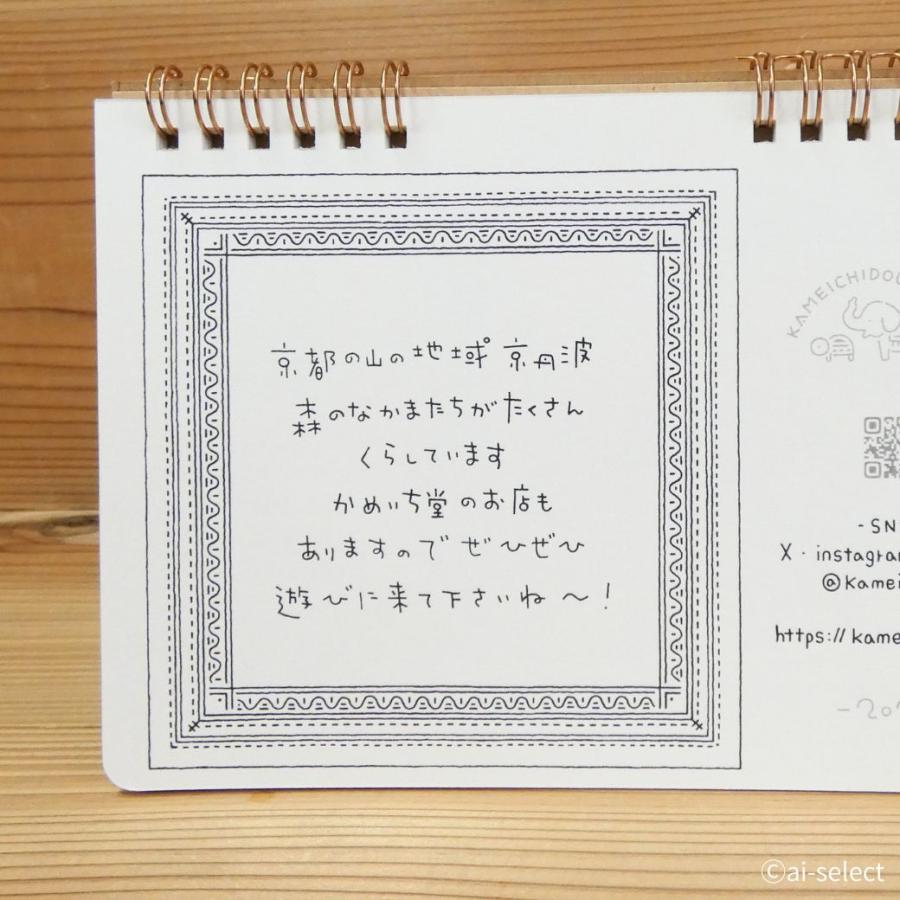 京都の山の地域 京丹波
森のなかまたちがたくさん
くらしています
かめいち堂のお店も
ありますので ぜひぜひ
遊びに来て下さいね～！
KAMEICHIDOU
-SN
X・instagra
@kamei
https://kame
©ai-select